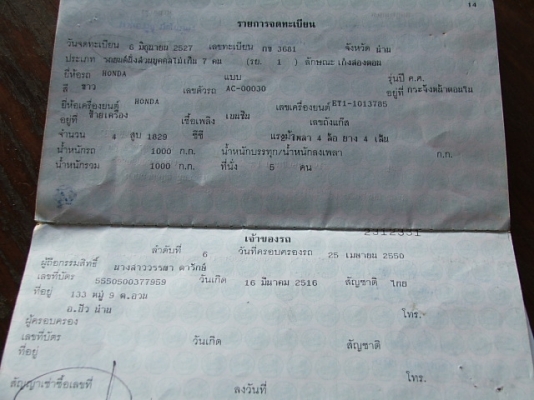 14
รายการจดทะเบียน
วันจดทะเบียน 6 มิถุนายน 2527 เลขทะเบียน กข 3681 จังหวัด น่าน
ประเภท รถยนต์นั่งส่วนบุคคลไม่เกิน 7 คน (รย. 1 ) ลักษณะ เก๋งสองตอน
ยี่ห้อรถ HONDA แบบ รุ่นปี ค.ศ.
สี ขาว เลขตัวรถ AC-00030 อยู่ที่ กระจังหน้าตอนริม
ยี่ห้อเครื่องยนต์ HONDA เลขเครื่องยนต์ ET1-1013785
อยู่ที่ ซ้ายเครื่อง เชื้อเพลิง เบนซิน เลขถังแก๊ส
จำนวน 4 สูบ 1829 ซีซี แรงม้า เพลา 4 ล้อ ยาง 4 เส้น
น้ำหนักรถ 1000 ก.ก. น้ำหนักบรรทุก/น้ำหนักลงเพลา ก.ก.
น้ำหนักรวม 1000 ก.ก. ที่นั่ง 5 คน
เจ้าของรถ
ลำดับที่ 6 วันที่ครอบครองรถ 25 เมษายน 2550
ผู้ถือกรรมสิทธิ์ นางสาววรรสา
เลขที่บัตร 5550500377959 วันเกิด 16 มีนาคม 2516 สัญชาติ ไทย
ที่อยู่ 133 หมู่ 9 ต.อวน
อ.ปัว น่าน โทร.
ผู้ครอบครอง
เลขที่บัตร วันเกิด สัญชาติ
ที่อยู่ โทร.
สัญญาเช่าซื้อเลขที่ ลงวันที่